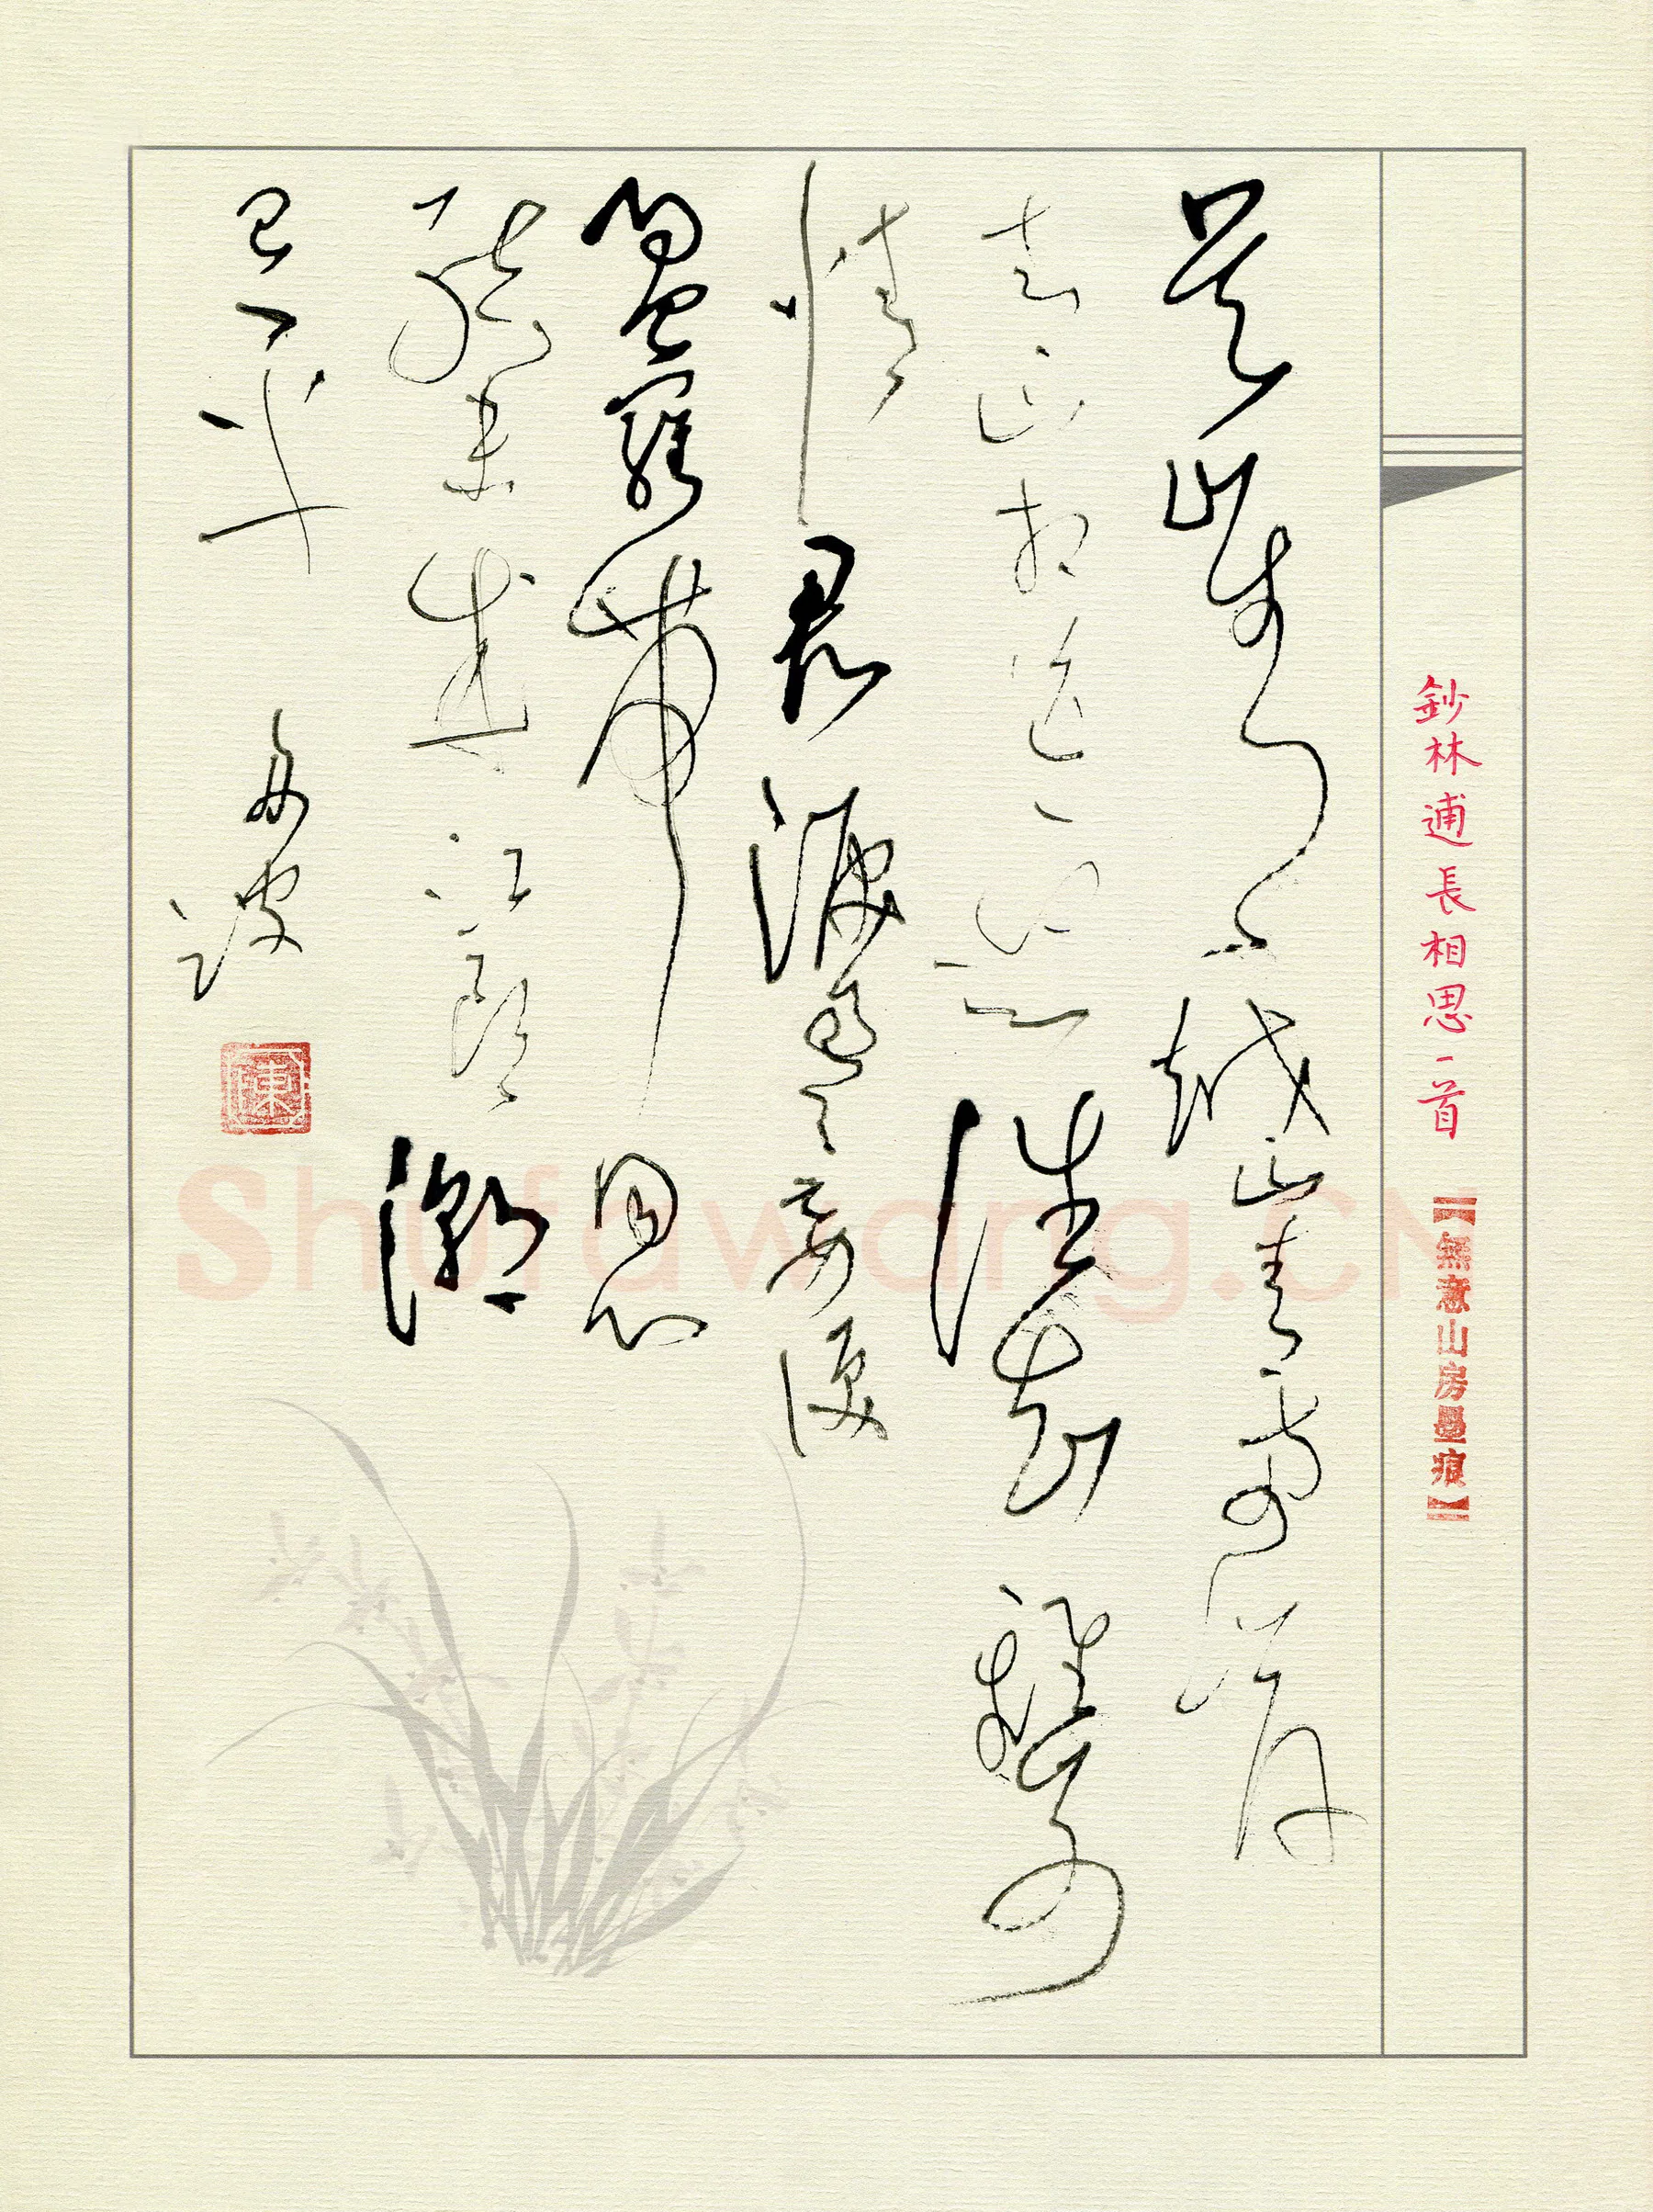 鈔林逋長相思一首
【無意山房墨痕】
吳山青越山青兩岸
青山相送迎誰知離別
情君淚盈妾淚
盈羅帶同心
結未成江頭潮
已平
波
陳
Shufawang.CN